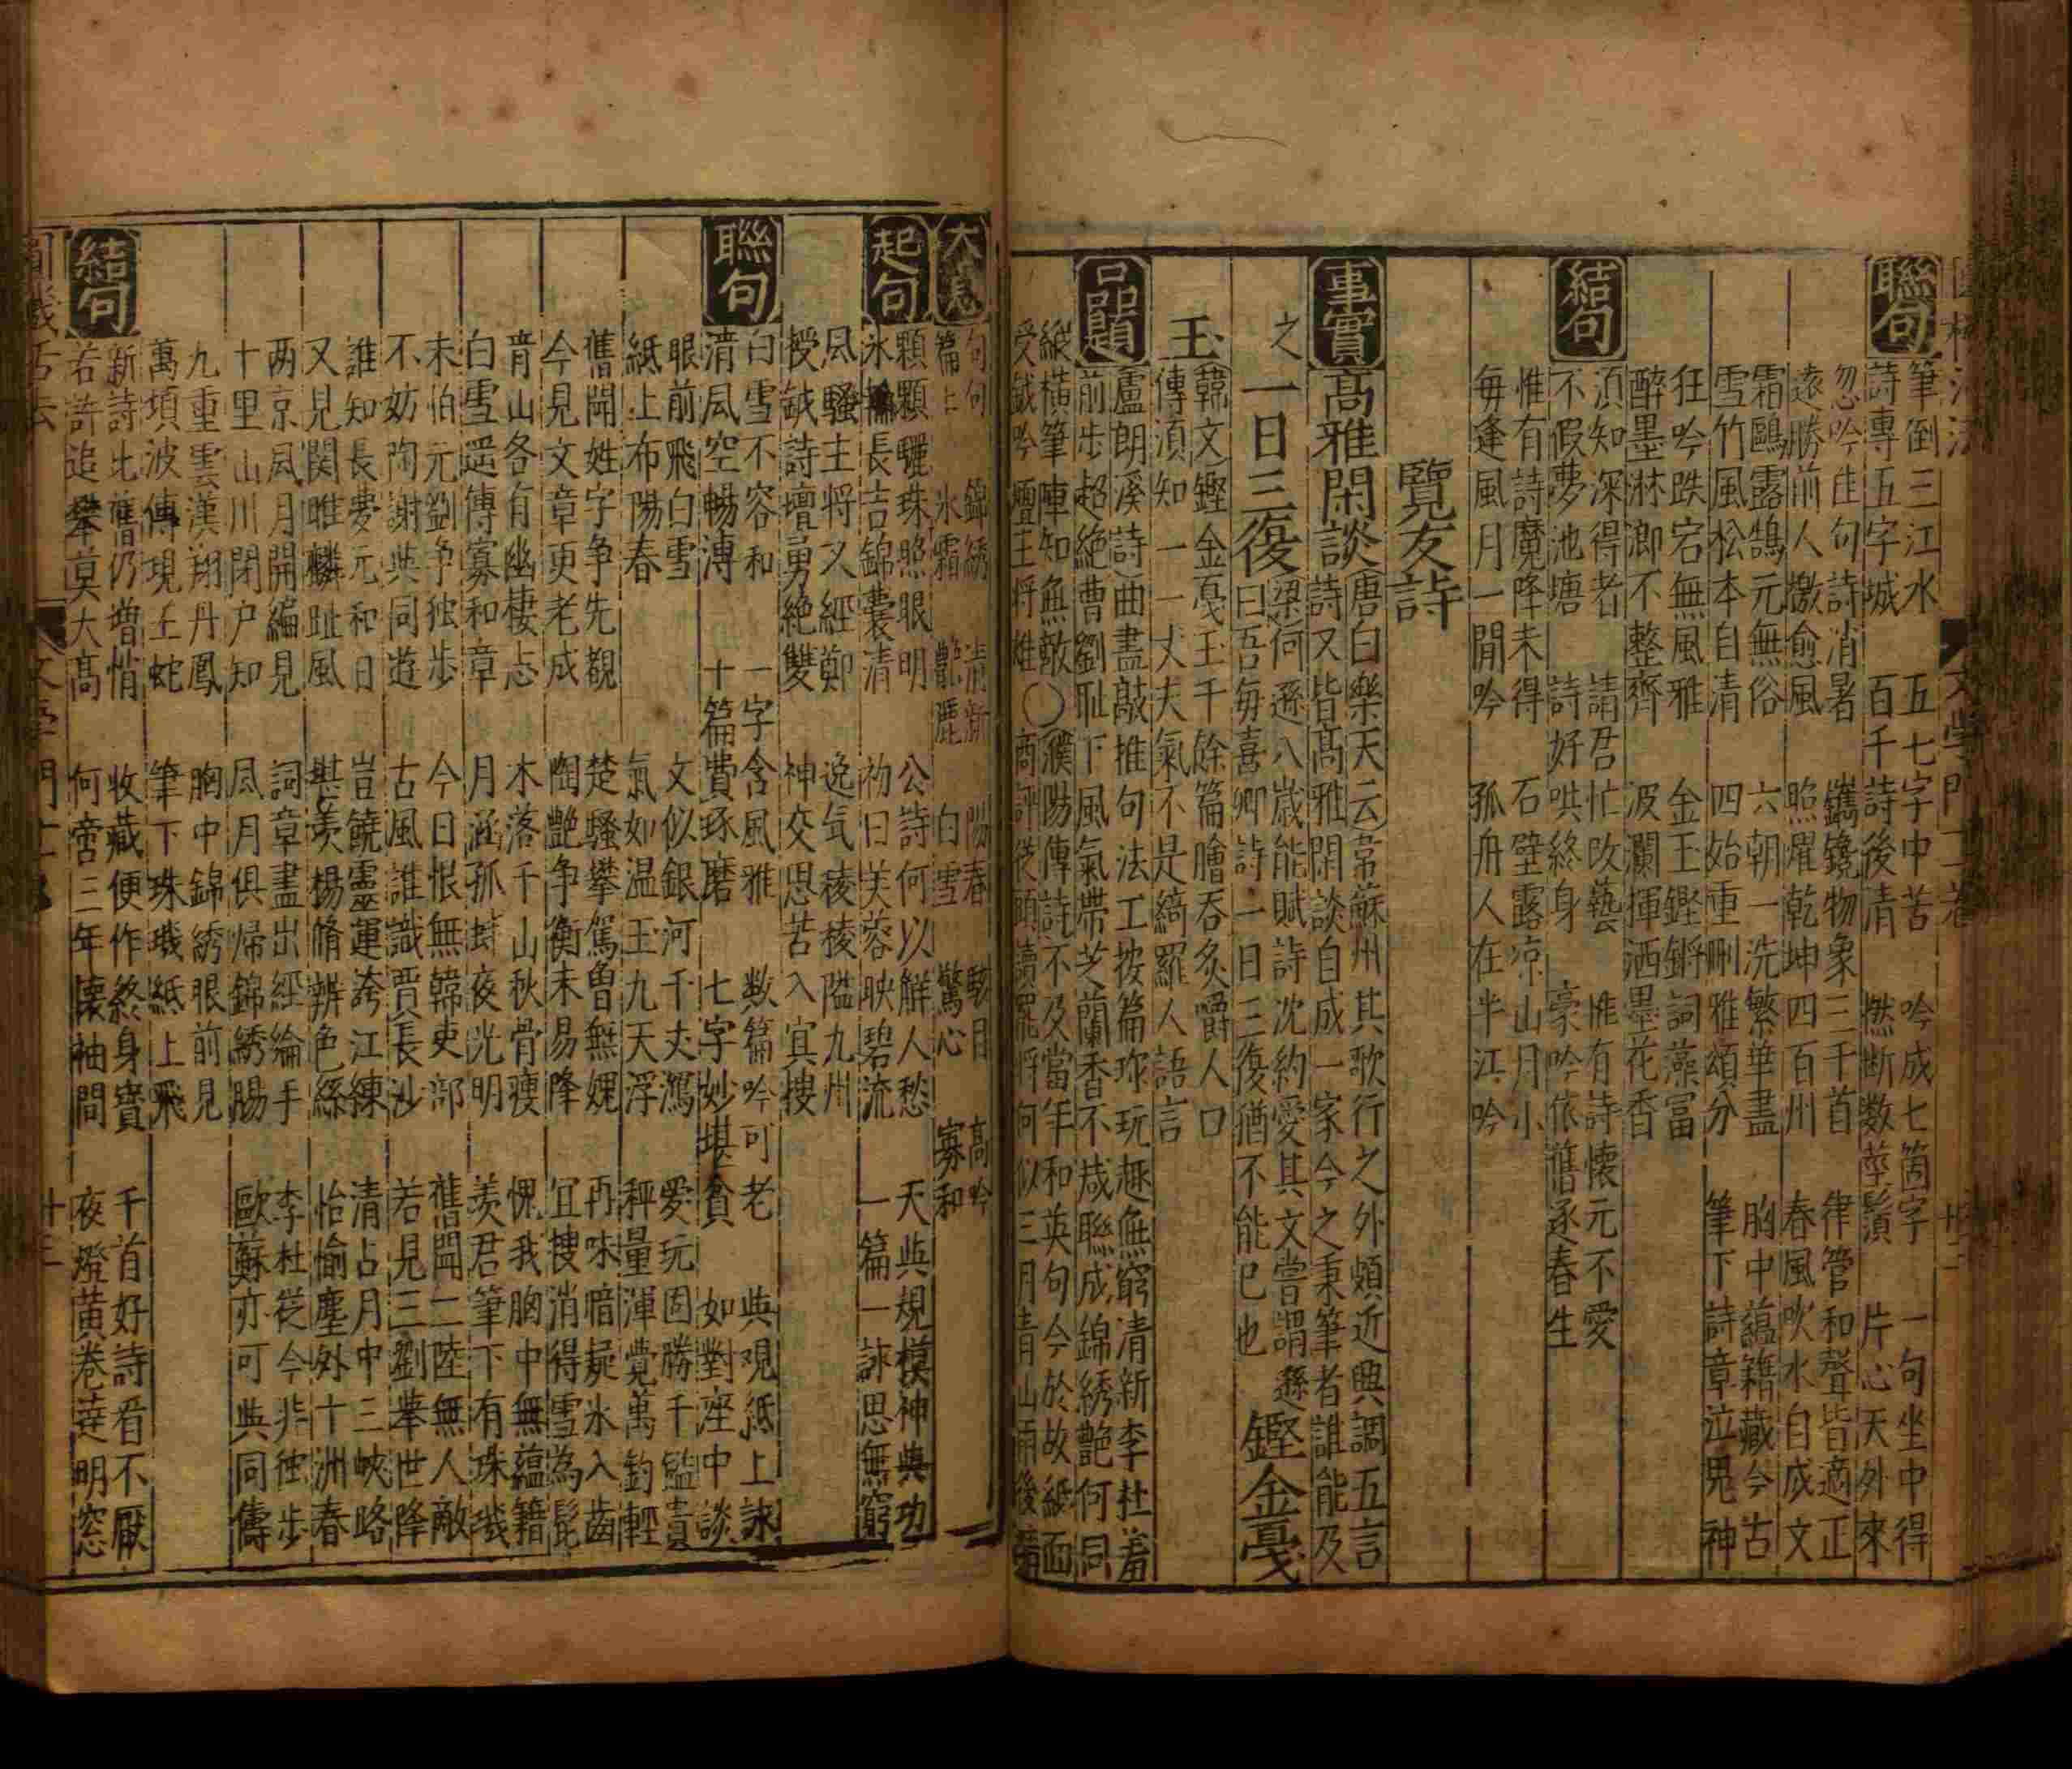 聯句
筆倒三江水　五七字中苦　吟成七箇字　一句坐中得
詩專五字城　百千詩後清　撚断数莖鬚　片心天外來
忽吟佳句詩消暑　鐫鑱物象三千首　律管和聲皆適正
遠勝前人檄愈風　照耀乾坤四百州　春風吹水自成文
霜鷗露鵠元無俗　六朝一洗繁華盡　胸中蘊籍藏今古
雪竹風松本自清　四始重刪雅頌分　筆下詩章泣鬼神
狂吟跌宕無風雅　金玉鏗鏘詞藻冨
醉墨淋漓不整齊　波瀾揮洒墨花香
結句
須知深得者　請君忙改藝　惟有詩懐元不愛
不假夢池塘　詩好哄終身　豪吟依舊逐春生
惟有詩魔降未得　石壁露凉山月小
毎逢風月一閒吟　孤舟人在半江吟
覽友詩
事實
髙雅閑談
唐白樂天云韋蘇州其歌行之外頗近興調五言
詩又皆髙雅閑談自成一家今之秉筆者誰能及
之
一日三復
梁何遜八歳能賦詩沈約愛其文嘗謂遜
曰吾毎喜卿詩一日三復猶不能已也
鏗金戞
玉
韓文鏗金戞玉千餘篇膾吞炙嚼人口
傳湏知一一丈夫氣不是綺羅人語言
品題
盧朗溪詩曲盡敲推句法工按篇珎玩趣無窮清新李杜羞
前歩超絶曹劉耻下風氣帶芝蘭香不 聯成錦綉艷何同
縱橫筆陣知無敵○濮陽傳詩不及當年和英句今於故紙面
受鉞吟壇王將雄 商評從頭讀罷將何似三月青山雨後
大意
句句　錦綉　清新　陽春　駭目　髙吟
篇上　氷霜　艷麗　白雪　驚心　寡和
起句
顆顆驪珠照眼明　公詩何以觧人愁　天與規模神與功
氷 長吉錦囊清　初日芙蓉映碧流　一篇一詠思無窮
風騷主将又經鄭　逸気稜稜隘九州
授鉞詩壇勇絶雙　神交思苦入冥搜
聯句
白雪不容和　一字含風雅　数篇吟可老　與觀紙上詠
清風空暢溥　十篇費琢磨　七字妙堪貪　如對座中談
眼前飛白雪　文似銀河千丈瀉　愛玩固勝千監責
紙上布陽春　氣如温玉九天浮　秤量渾覺萬鈞輕
舊聞姓字争先覩　楚騷攀駕魯無媿　再咏暗疑氷入齒
今見文章更老成　陶艷争衡未易降　冝搜消得雪為髭
青山各有幽棲志　木落千山秋骨瘦　愧我胸中無蘊籍
白雪遥傳寡和章　月涵孤蚌夜光明　羡君筆下有珠璣
未怕元劉争独歩　今日恨無韓吏部　舊聞二陸無人敵
不妨陶謝與同遊　古風誰識賈長沙　若見三劉舉世降
誰知長慶元和日　豈饒靈運誇江練　清占月中三峽路
又見関雎麟趾風　甚羡楊脩辨色絲　怡愉塵外十洲春
两京風月開編見　詞章盡出經綸手　李杜從今非徒歩
十里山川閉户知　風月俱帰錦綉腸　歐蘇亦可與同儔
九重雲漢翔丹鳳　胸中錦綉眼前見
萬項波傳現玉蛇　筆下珠璣紙上飛
結句
新詩比舊仍增悄　收藏便作終身寳　千首好詩看不厭
若許追攀莫大髙　何啻三年懐袖間　夜燈黄巻達明窓